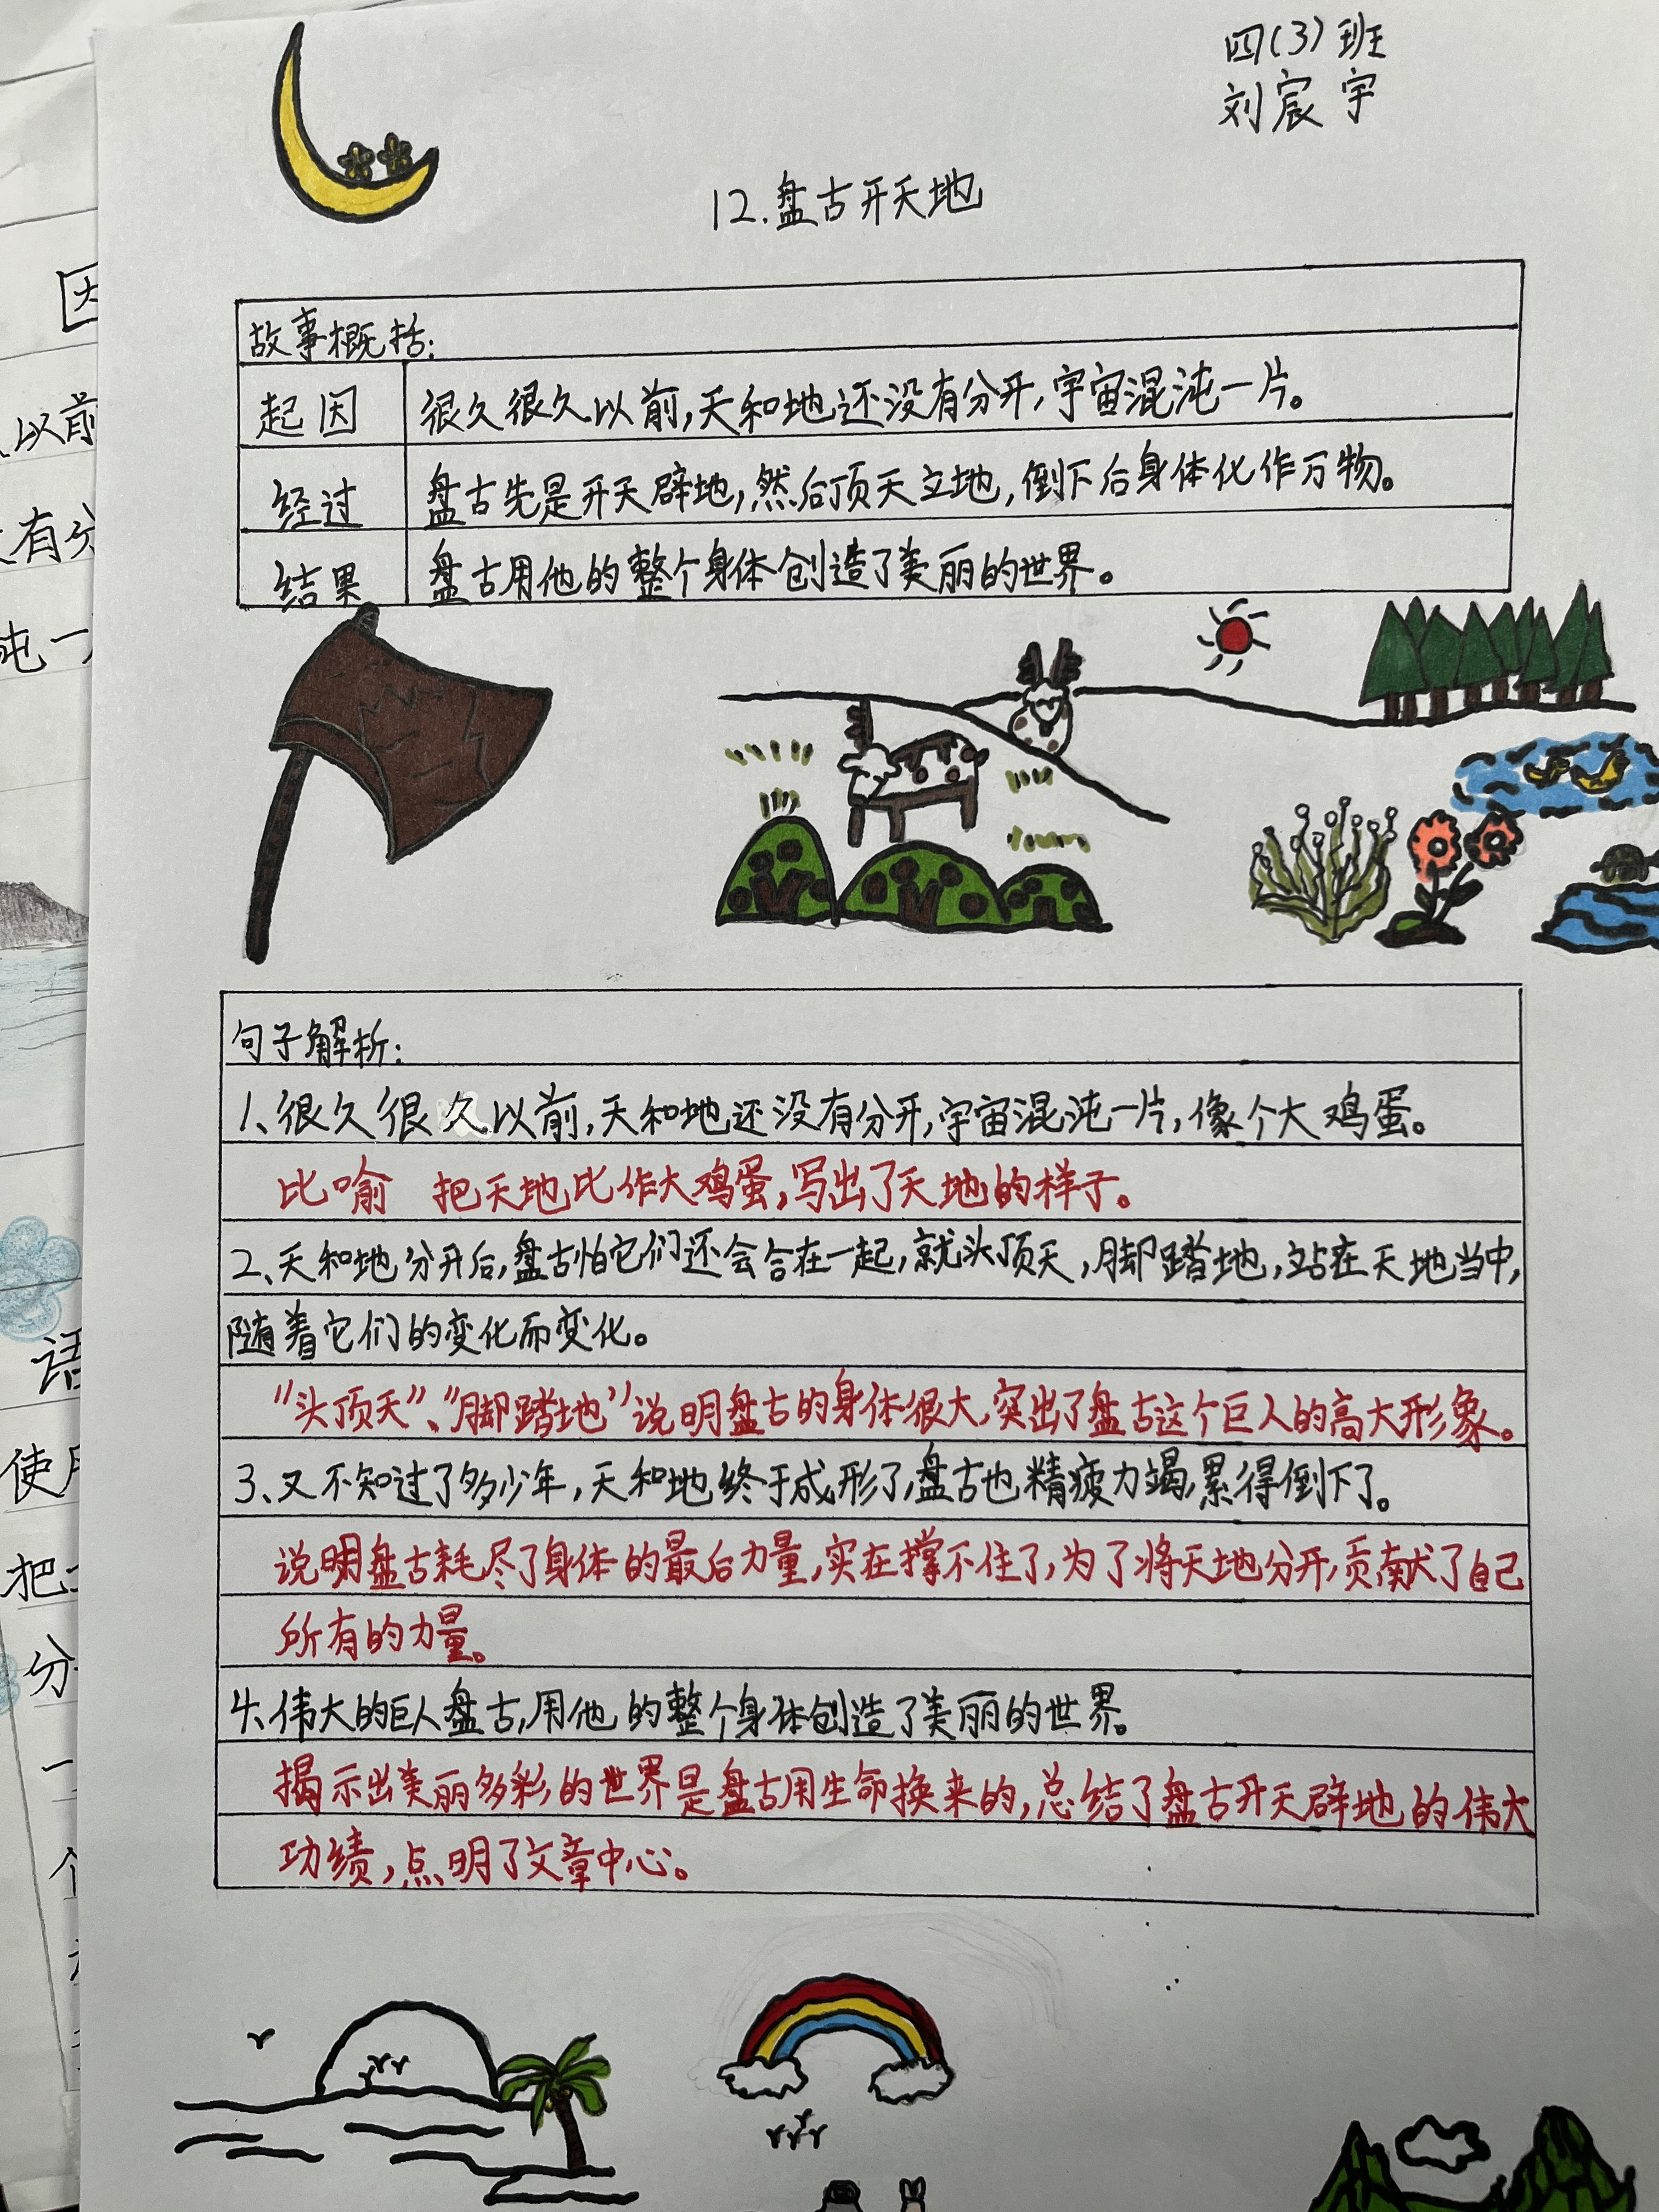 四(3)班
刘宸宇
12.盘古开天地
故事概括:
起因 很久很久以前,天和地还没有分开,宇宙混沌一片。
经过 盘古先是开天辟地,然后顶天立地,倒下后身体化作万物。
结果 盘古用他的整个身体创造了美丽的世界。
句子解析:
1、很久很久以前,天和地还没有分开,宇宙混沌一片,像个大鸡蛋。
比喻 把天地比作大鸡蛋,写出了天地的样子。
2、天和地分开后,盘古怕它们还会合在一起,就头顶天,脚踏地,站在天地当中,
随着它们的变化而变化。
“头顶天”、“脚踏地”说明盘古的身体很大,突出了盘古这个巨人的高大形象。
3、又不知过了多少年,天和地终于成形了,盘古也精疲力竭,累得倒下了。
说明盘古耗尽了身体的最后力量,实在撑不住了,为了将天地分开,贡献了自己
所有的力量。
4、伟大的巨人盘古,用他的整个身体创造了美丽的世界。
揭示出美丽多彩的世界是盘古用生命换来的,总结了盘古开天辟地的伟大
功绩,点明了文章中心。
以前
有分
沌一
语
使用
把
分